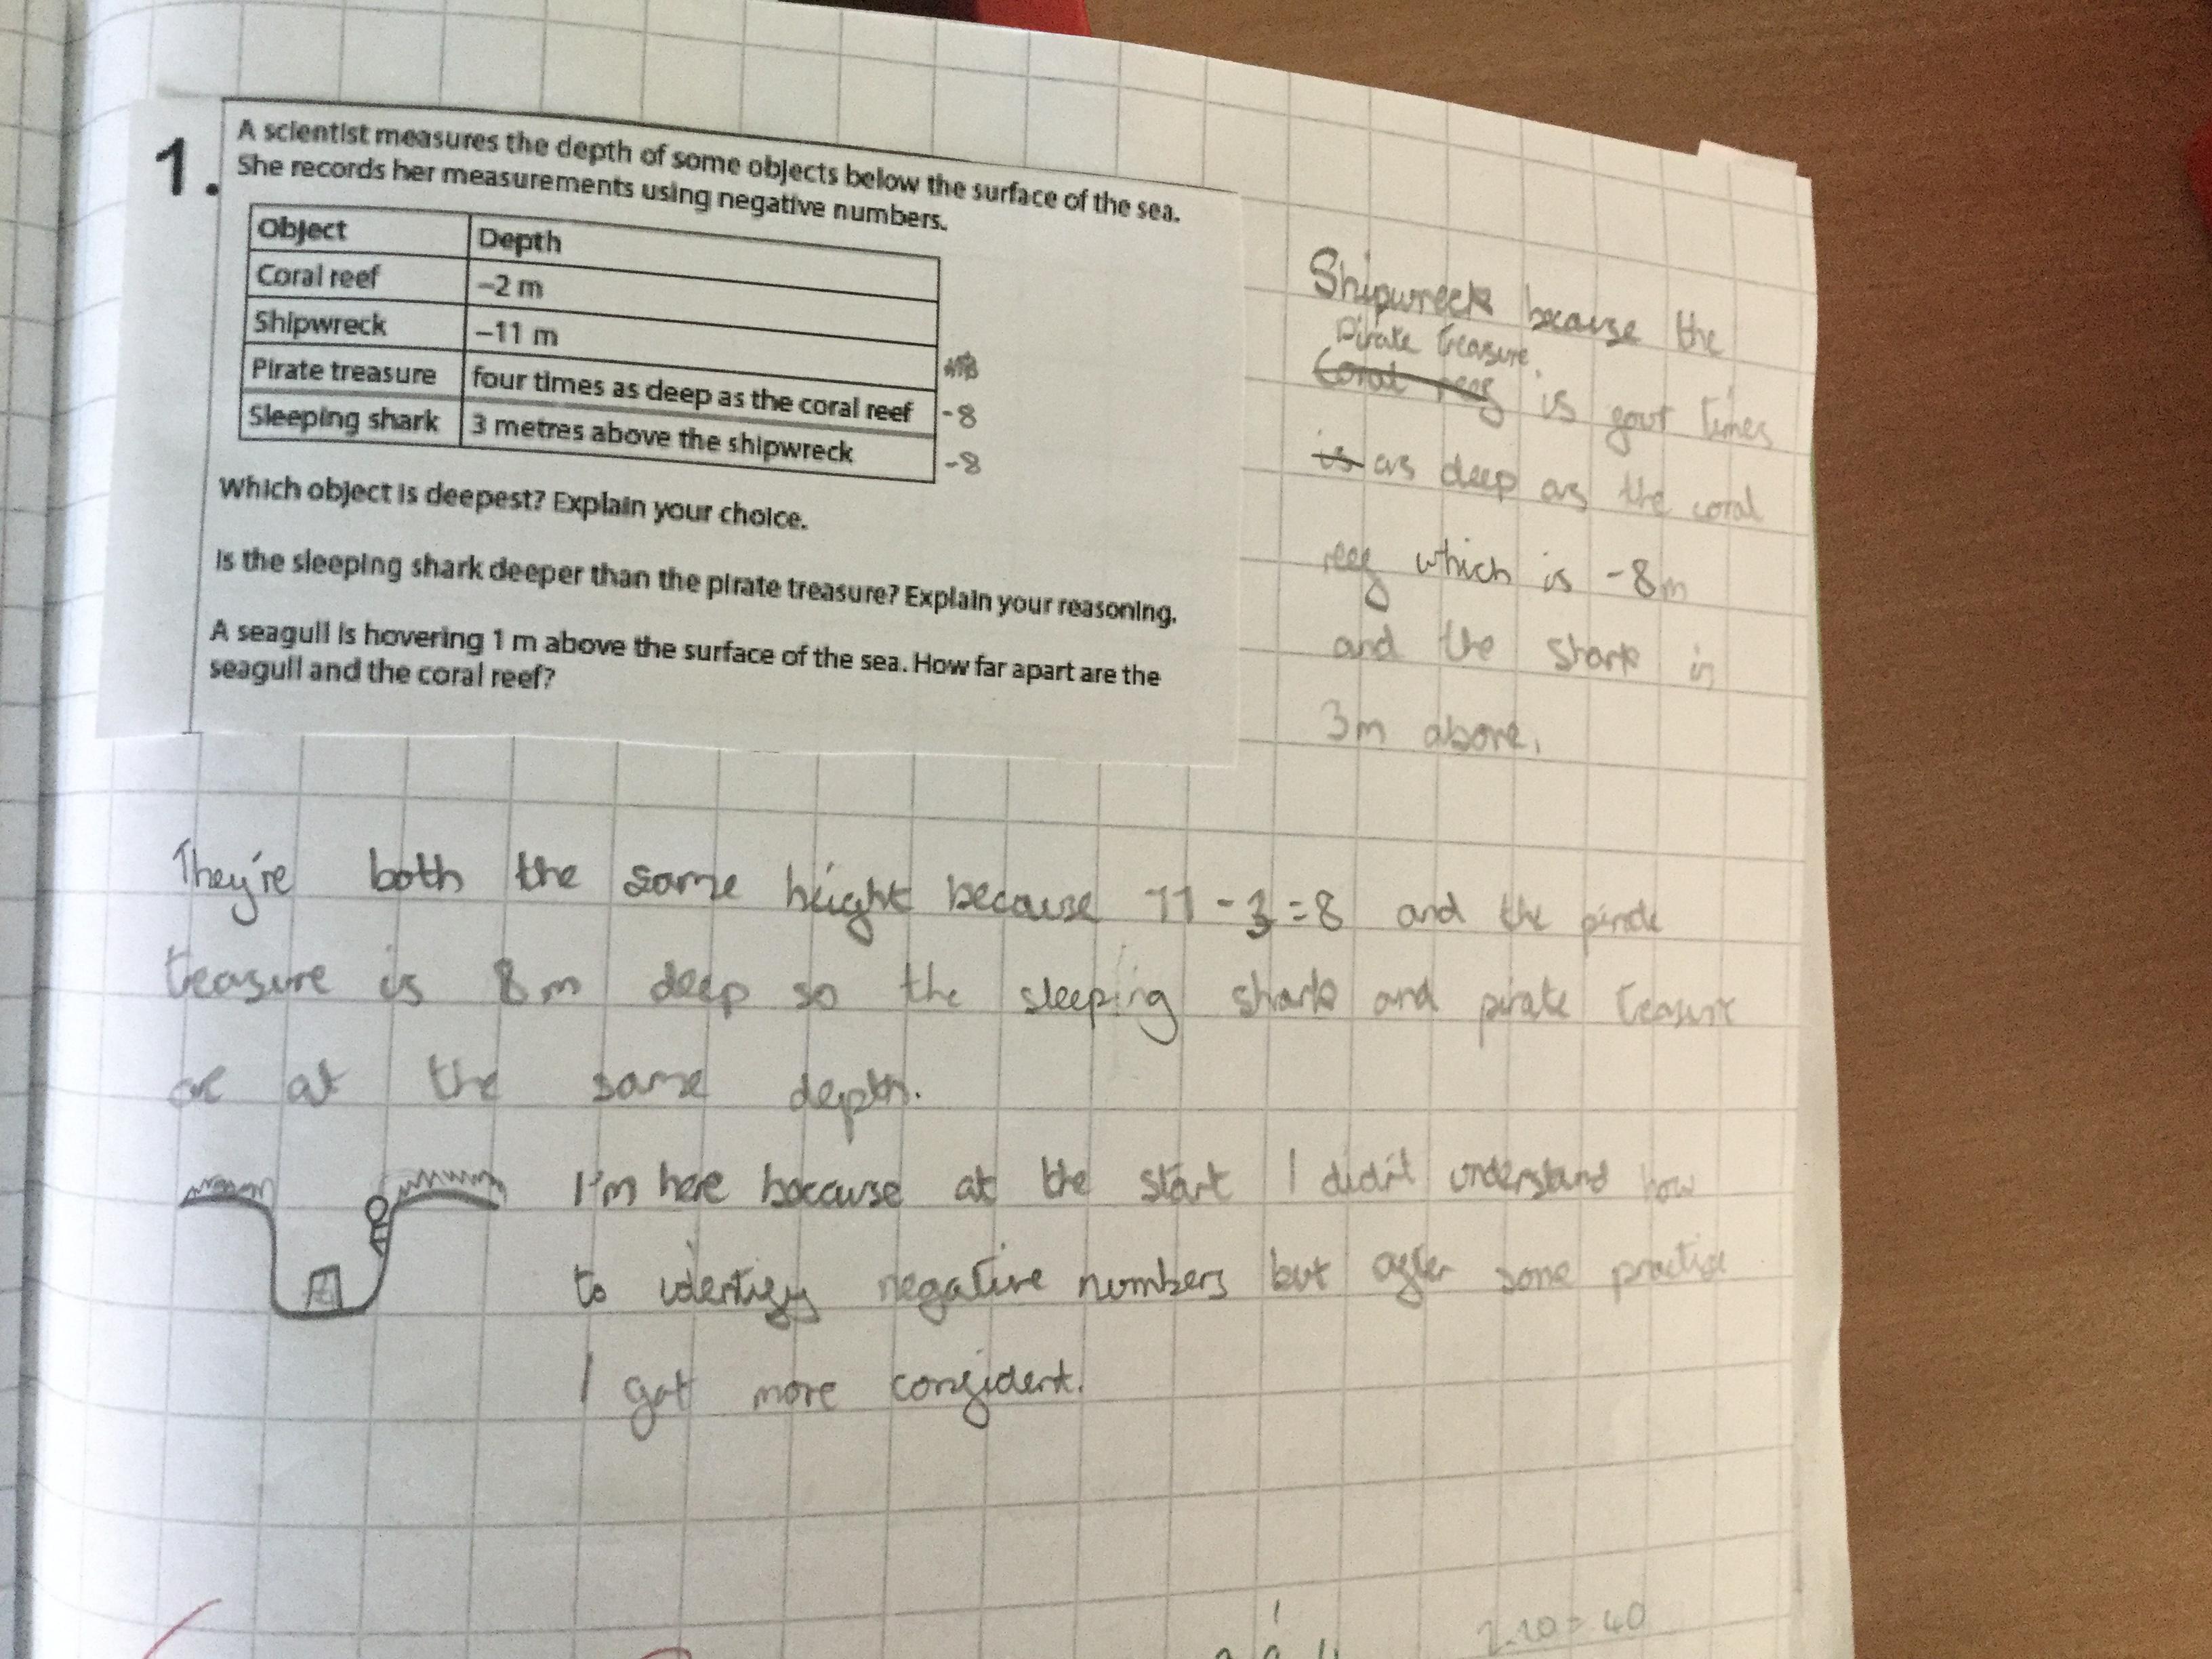 1.
A scientist measures the depth of some objects below the surface of the sea.
She records her measurements using negative numbers.
Object Depth
Coral reef –2 m
Shipwreck –11 m
Pirate treasure four times as deep as the coral reef -8
Sleeping shark 3 metres above the shipwreck -8
Which object is deepest? Explain your choice.
Is the sleeping shark deeper than the pirate treasure? Explain your reasoning.
A seagull is hovering 1 m above the surface of the sea. How far apart are the
seagull and the coral reef?
Shipwreck because the
Pirate treasure
Coral reef is four times
is as deep as the coral
reef which is -8m
and the shark is
3m above.
They're both the same height because 11-3=8 and the pirate
treasure is 8m deep so the sleeping shark and pirate treasure
are at the same depth.
I'm here because at the start I didn't understand how
to identify negative numbers but after some practise
I got more confident.